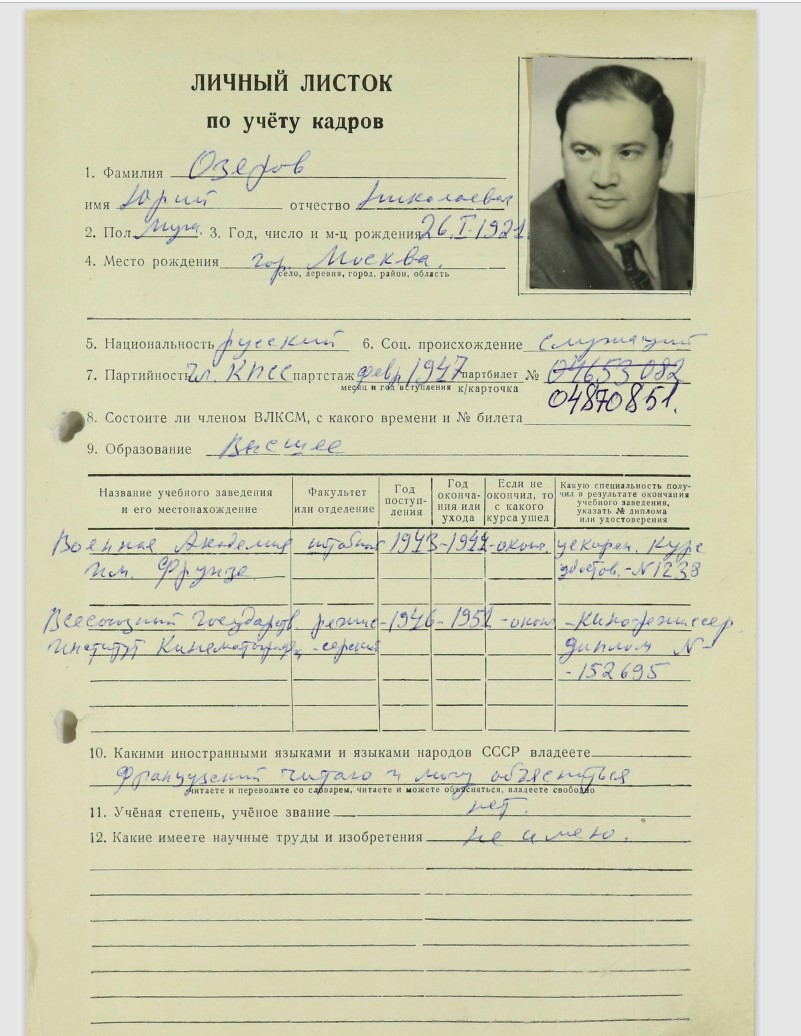 ЛИЧНЫЙ ЛИСТОК
по учёту кадров
1. Фамилия Озеров
имя Юрий отчество Николаевич
2. Пол Муж. 3. Год, число и м-ц рождения 26.I-1921.
4. Место рождения гор. Москва.
село, деревня, город, район, область
5. Национальность русский 6. Соц. происхождение служащий
7. Партийность чл. КПСС партстаж февр. 1947 партбилет № 04653082
месяц и год вступления к/карточка
04870851.
8. Состоите ли членом ВЛКСМ, с какого времени и № билета
9. Образование Высшее
Название учебного заведения и его местонахождение
Факультет или отделение
Год поступ-ления
Год оконча-ния или ухода
Если не окончил, то с какого курса ушел
Какую специальность полу-чил в результате окончания учебного заведения, указать № диплома или удостоверения
Военная Академия штабной 1943 -1944 -оконч. ускорен. курс
им. Фрунзе удостов. -N1238
Всесоюзный Государств. режис- -1946 - 1951 -оконч -Кинорежиссер
институт Кинематограф. -серский диплом N-
-152695
10. Какими иностранными языками и языками народов СССР владеете
Французский читаю и могу объясниться
читаете и переводите со словарем, читаете и можете объясняться, владеете свободно
11. Учёная степень, учёное звание нет.
12. Какие имеете научные труды и изобретения не имею.